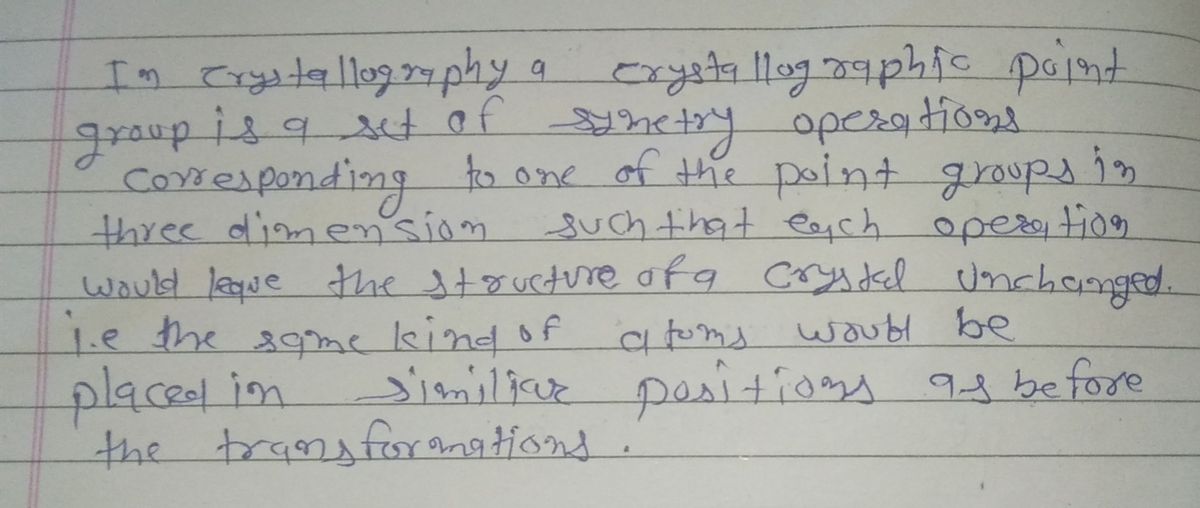 In crystallography a crystallographic point
group is a set of symetry operations
corresponding to one of the point groups in
three dimension such that each operation
would leave the structure of a crystal unchanged.
i.e the same kind of atoms would be
placed in similiar positions as before
the transformations.